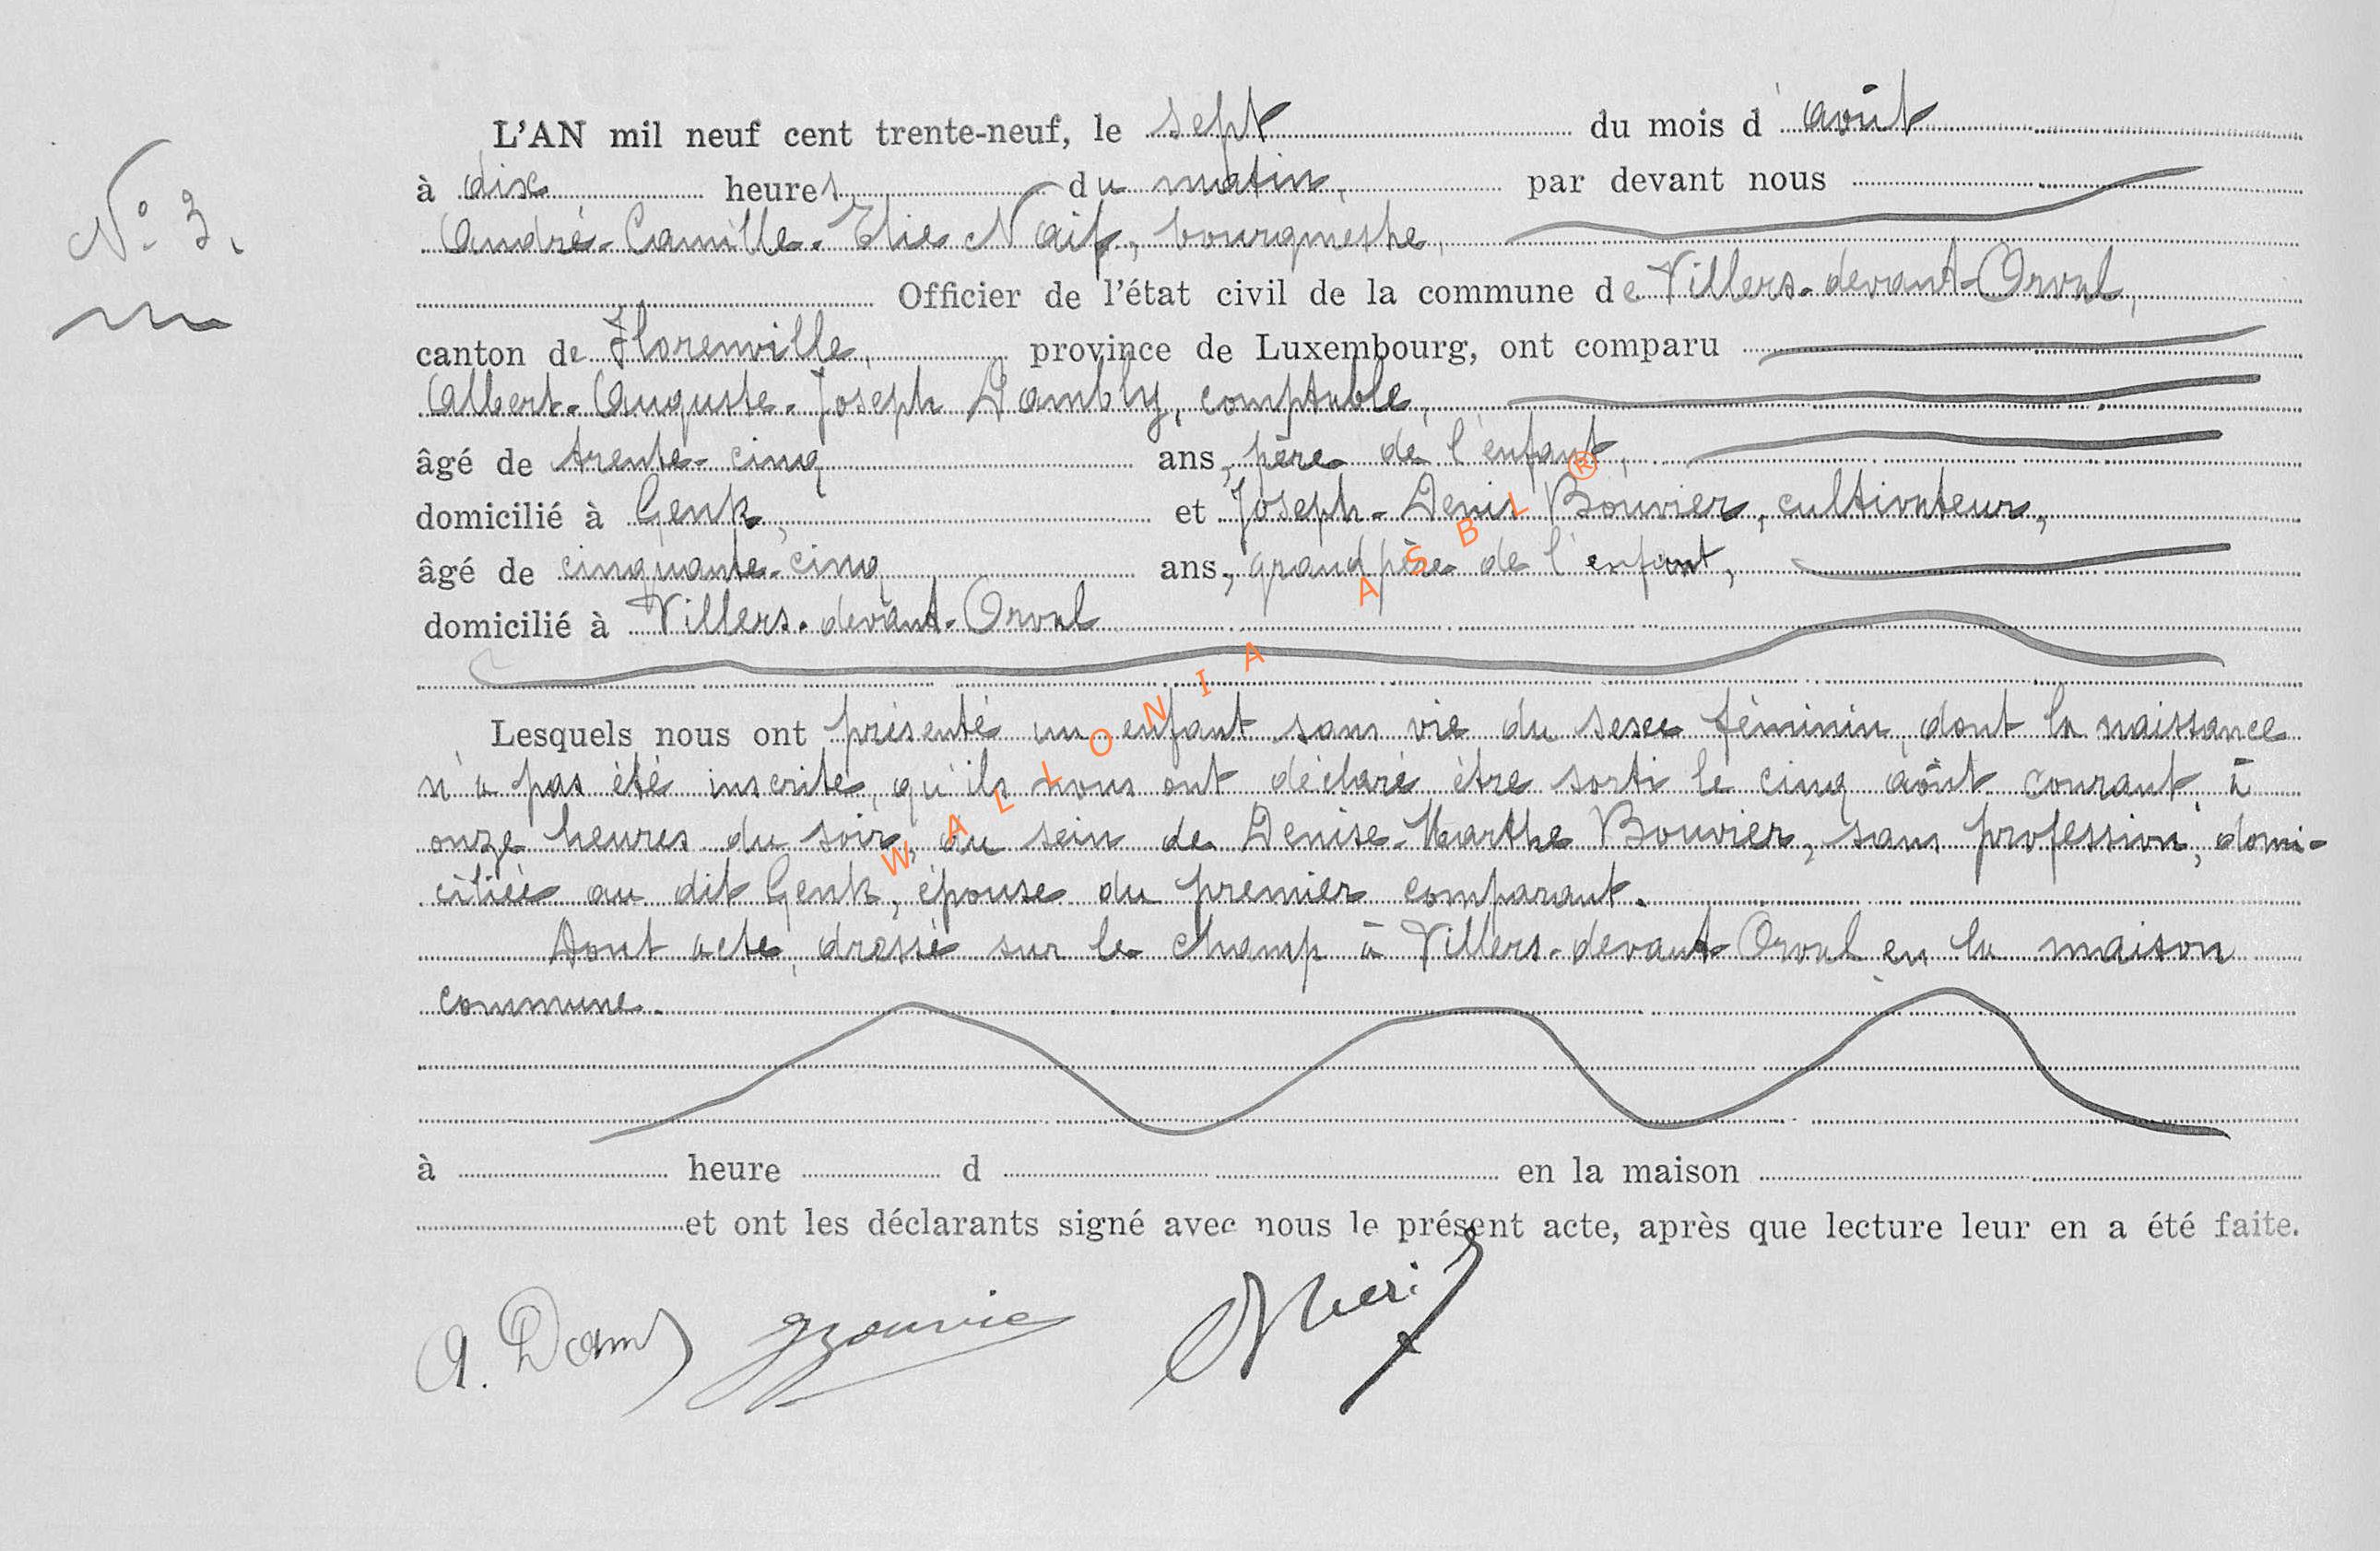 L'AN mil neuf cent trente-neuf, le sept du mois d'août
N° 3.
à dix heures du matin, par devant nous
André-Camille-Elie Naif, bourgmestre,
Officier de l'état civil de la commune de Villers-devant-Orval,
canton de Florenville, province de Luxembourg, ont comparu
Albert-Auguste-Joseph Dambly, comptable,
âgé de trente-cinq ans, père de l'enfant,
domicilié à Genk, et Joseph-Denis Bouvier, cultivateur,
âgé de cinquante-cinq ans, grand père de l'enfant,
domicilié à Villers-devant-Orval
Lesquels nous ont présenté un enfant sans vie du sexe féminin, dont la naissance
n'a pas été inscrite, qu'ils nous ont déclaré être sorti le cinq août courant, à
onze heures du soir, du sein de Denise-Marthe Bouvier, sans profession, domi-
ciliée au dit Genk, épouse du premier comparant.
Dont acte, dressé sur le champ à Villers-devant-Orval en la maison
commune.
à heure d en la maison
et ont les déclarants signé avec nous le présent acte, après que lecture leur en a été faite.
A. Dam
WALLONIA ASBL ®